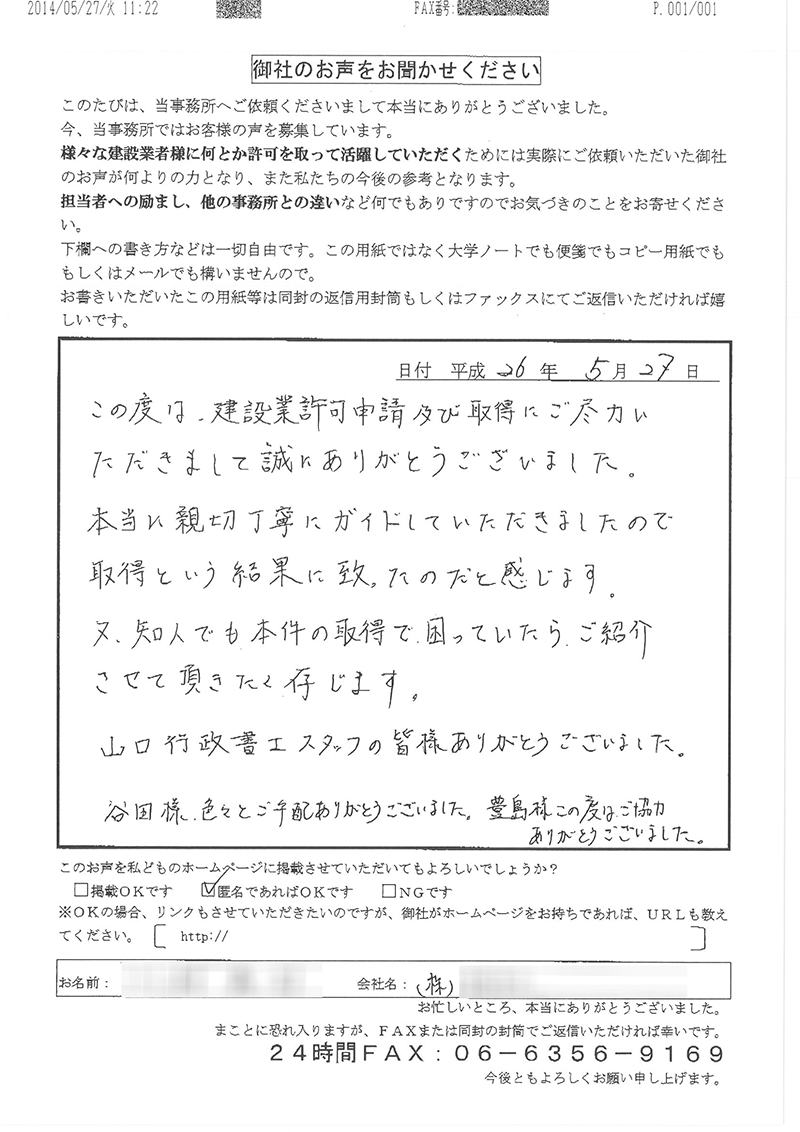 2014/05/27/火 11:22 FAX番号: P.001/001
御社のお声をお聞かせください
このたびは、当事務所へご依頼くださいまして本当にありがとうございました。
今、当事務所ではお客様の声を募集しています。
様々な建設業者様に何とか許可を取って活躍していただくためには実際にご依頼いただいた御社
のお声が何よりの力となり、また私たちの今後の参考となります。
担当者への励まし、他の事務所との違いなど何でもありですのでお気づきのことをお寄せくださ
い。
下欄への書き方などは一切自由です。この用紙ではなく大学ノートでも便箋でもコピー用紙でも
もしくはメールでも構いませんので。
お書きいただいたこの用紙等は同封の返信用封筒もしくはファックスにてご返信いただければ嬉
しいです。
日付 平成 26 年 5 月 27 日
この度は、建設業許可申請及び取得にご尽力い
ただきまして誠にありがとうございました。
本当に親切丁寧にガイドしていただきましたので
取得という結果に致ったのだと感じます。
又、知人でも本件の取得で困っていたら、ご紹介
させて頂きたく存じます。
山口行政書士スタッフの皆様ありがとうございました。
谷田様、色々とご手配ありがとうございました。豊島様この度はご協力
ありがとうございました。
このお声を私どものホームページに掲載させていただいてもよろしいでしょうか?
□掲載OKです ☑匿名であればOKです □NGです
※OKの場合、リンクもさせていただきたいのですが、御社がホームページをお持ちであれば、URLも教え
てください。 [ http:// ]
お名前: 会社名:(株)
お忙しいところ、本当にありがとうございました。
まことに恐れ入りますが、FAXまたは同封の封筒でご返信いただければ幸いです。
24時間FAX:06-6356-9169
今後ともよろしくお願い申し上げます。